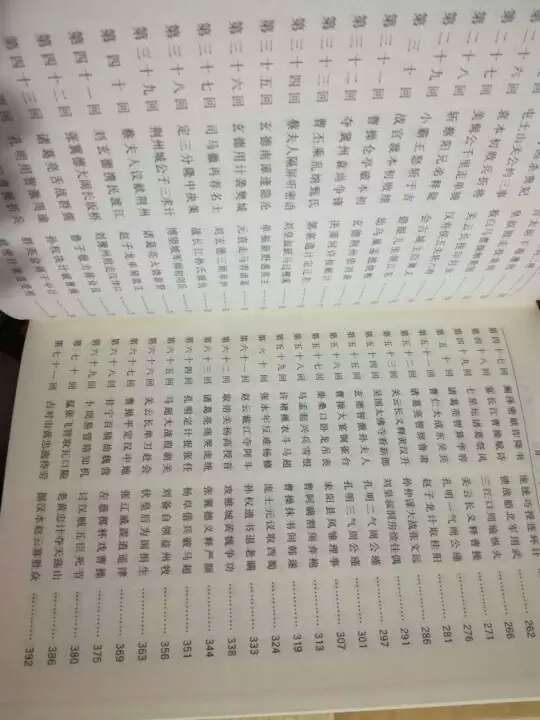 第二十六回 袁本初败兵折将 关云长挂印封金
第二十七回 美髯公千里走单骑 汉寿侯五关斩六将
第二十八回 斩蔡阳兄弟释疑 会古城主臣聚义
第二十九回 小霸王怒斩于吉 碧眼儿坐领江东
第三十回 战官渡本初败绩 劫乌巢孟德烧粮
第三十一回 曹操仓亭破本初 玄德荆州依刘表
第三十二回 夺冀州袁尚争锋 决漳河许攸献计
第三十三回 曹丕乘乱纳甄氏 郭嘉遗计定辽东
第三十四回 蔡夫人隔屏听密语 刘皇叔跃马过檀溪
第三十五回 玄德南漳逢隐沦 单福新野遇英主
第三十六回 玄德用计袭樊城 元直走马荐诸葛
第三十七回 司马徽再荐名士 刘玄德三顾草庐
第三十八回 定三分隆中决策 战长江孙氏报仇
第三十九回 荆州城公子三求计 博望坡军师初用兵
第四十回 蔡夫人议献荆州 诸葛亮火烧新野
第四十一回 刘玄德携民渡江 赵子龙单骑救主
第四十二回 张翼德大闹长坂桥 刘豫州败走汉津口
第四十三回 诸葛亮舌战群儒 鲁子敬力排众议
第四十七回 阚泽密献诈降书 庞统巧授连环计
第四十八回 宴长江曹操赋诗 锁战船北军用武 262
第四十九回 七星坛诸葛祭风 三江口周瑜纵火 266
第五十回 诸葛亮智算华容 关云长义释曹操 271
第五十一回 曹仁大战东吴兵 孔明一气周公瑾 276
第五十二回 诸葛亮智辞鲁肃 赵子龙计取桂阳 281
第五十三回 关云长义释黄汉升 孙仲谋大战张文远 286
第五十四回 吴国太佛寺看新郎 刘皇叔洞房续佳偶 291
第五十五回 玄德智激孙夫人 孔明二气周公瑾 297
第五十六回 曹操大宴铜雀台 孔明三气周公瑾 301
第五十七回 柴桑口卧龙吊丧 耒阳县凤雏理事 307
第五十八回 马孟起兴兵雪恨 曹阿瞒割须弃袍 313
第五十九回 许褚裸衣斗马超 曹操抹书间韩遂 319
第六十回 张永年反难杨修 庞士元议取西蜀 324
第六十一回 赵云截江夺阿斗 孙权遗书退老瞒 333
第六十二回 取涪关杨高授首 攻雒城黄魏争功 338
第六十三回 诸葛亮痛哭庞统 张翼德义释严颜 344
第六十四回 孔明定计捉张任 杨阜借兵破马超 351
第六十五回 马超大战葭萌关 刘备自领益州牧 356
第六十六回 关云长单刀赴会 伏皇后为国捐生 363
第六十七回 曹操平定汉中地 张辽威震逍遥津 369
第六十八回 甘宁百骑劫魏营 左慈掷杯戏曹操 375
第六十九回 卜周易管辂知机 讨汉贼五臣死节 380
第七十回 猛张飞智取瓦口隘 老黄忠计夺天荡山 386
第七十一回 占对山黄忠逸待劳 据汉水赵云寡胜众 392